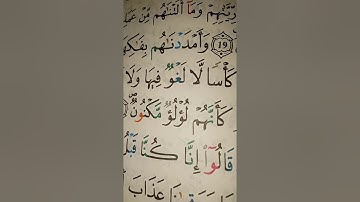 وَمَآ أَلَتْنَٰهُم مِّنْ
19 وَأَمْدَدْنَٰهُم بِفَٰكِهَ
كَأْسًا لَّا لَغْوٌ فِيهَا وَلَا
كَأَنَّهُمْ لُؤْلُؤٌ مَّكْنُونٌ
قَالُوٓا۟ إِنَّا كُنَّا قَبْلُ
عَذَابَ